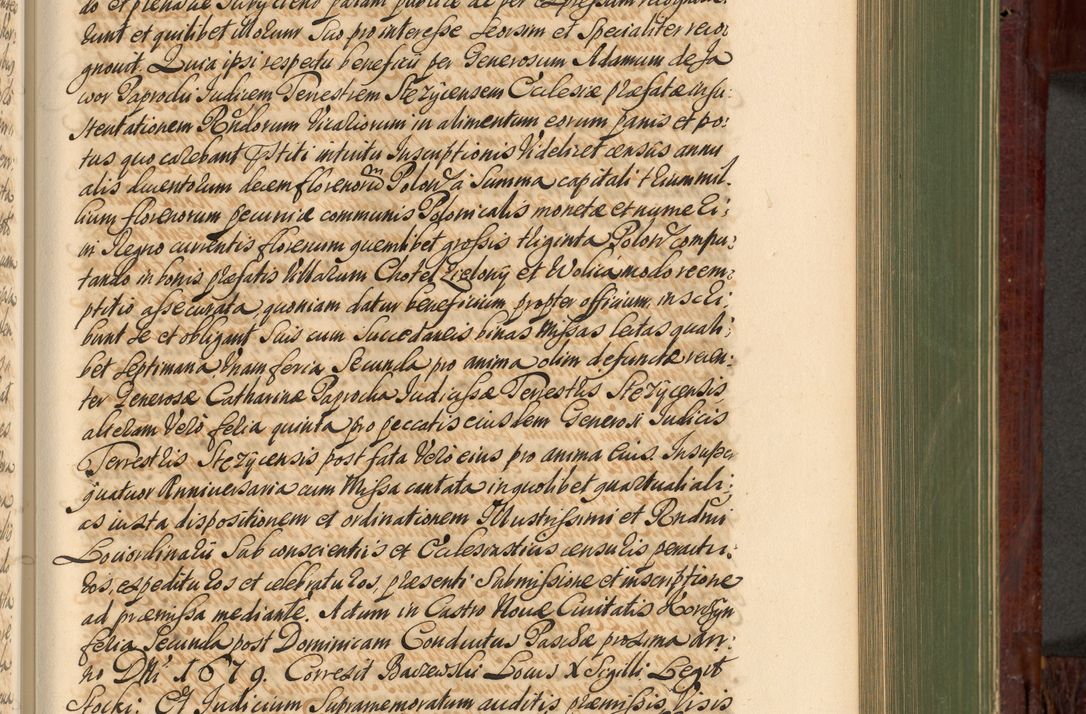 do et plenarie Subijciendo palam publice ac per expressum recognove:
runt et quilibet illorum Suo pro interesse seorsim et Specialiter reco:
gnovit. Quia ipsi respectu beneficii per Generosum Adamum de Ja
wor Paprocki Judicem Terrestrem Stezycensem Ecclesiæ Præfatæ in su:
stentationem Rndorum Vicariorum in alimentum eorum panis et po:
tus quo carebant Pstiti intuitu Inscriptionis Videlicet census annu
alis ducentorum decem florenorū Polon̄ à Summa capitali trium mil:
lium florenorum pecuniæ communis Polonicalis monetæ et numeri
in Regno currentis florenum quemlibet grossis triginta Polon̄ compu:
tando in bonis præfatis Villarum Chotel Zielony et Wolica modo reem:
ptitio assecurata, quoniam datur beneficium propter officium, inscri:
bunt se et obligant Suis cum Succedaneis binas Missas lectas quali:
bet Septimana Unam feria Secunda pro anima olim defunctæ recen:
ter Generosæ Catharinæ Paprocka Judicissæ Terrestris Stezycensis
alteram Vero feria quinta pro peccatis eiusdem Generosi Judicis
Terrestris Stezycensis post fata Vero eius pro anima Eius. Insuper
quatuor Anniversaria cum Missa cantata in quolibet quartuali ali:
as iuxta dispositionem et ordinationem Illustrissimi et Rndmi
Lociordinarii Sub conscientiis et Ecclesiasticis censuris peractu:
ros, expedituros et celebraturos, præsenti Submissione et inscriptione
ad præmissa mediante. Actum in Castro Novæ Civitatis Korczyn
feria Secunda post Dominicam Conductus Paschæ proxima An:
no Dni 1679. Correxit Baczewski Locus X Sigilli Legit
Stocki: Et Judicium Supramemoratum auditis præmissis Visis